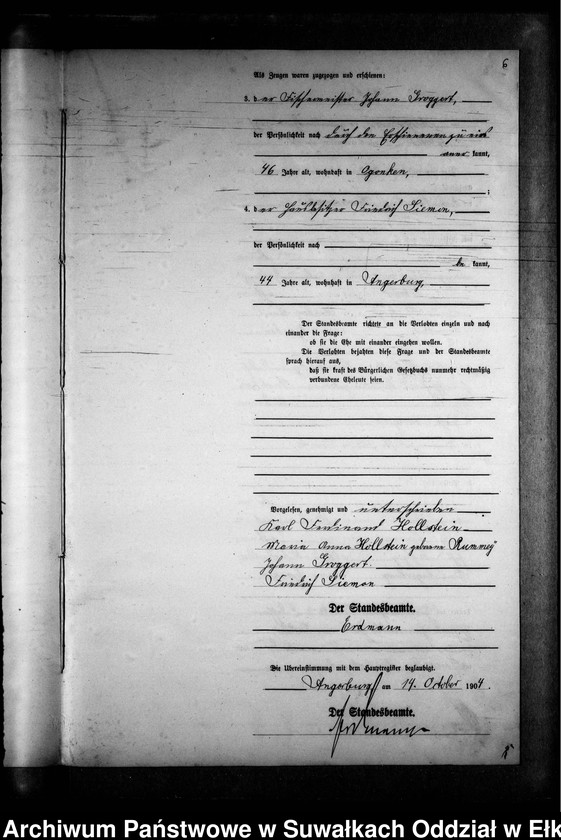 6
Als Zeugen waren zugezogen und erschienen:
3. der Fischermeister Johann Groggert,
der Persönlichkeit nach durch den
kannt,
46 Jahre alt, wohnhaft in Ogonken,
;
4. der Hausbesitzer Friedrich Siemon,
der Persönlichkeit nach
be kannt,
44 Jahre alt, wohnhaft in Angerburg,
Der Standesbeamte richtete an die Verlobten einzeln und nach
einander die Frage:
ob sie die Ehe mit einander eingehen wollen.
Die Verlobten bejahten diese Frage und der Standesbeamte
sprach hierauf aus,
daß sie kraft des Bürgerlichen Gesetzbuchs nunmehr rechtmäßig
verbundene Eheleute seien.
Vorgelesen, genehmigt und unterschrieben
Karl Ferdinand Hollstein
Maria Anna Hollstein geborene Rummey
Johann Groggert
Friedrich Siemon
Der Standesbeamte.
Erdmann
Die Übereinstimmung mit dem Hauptregister beglaubigt.
Angerburg am 14. October 1904.
Der Standesbeamte.
Erdmann
Archiwum Państwowe w Suwałkach Oddział w Ełk